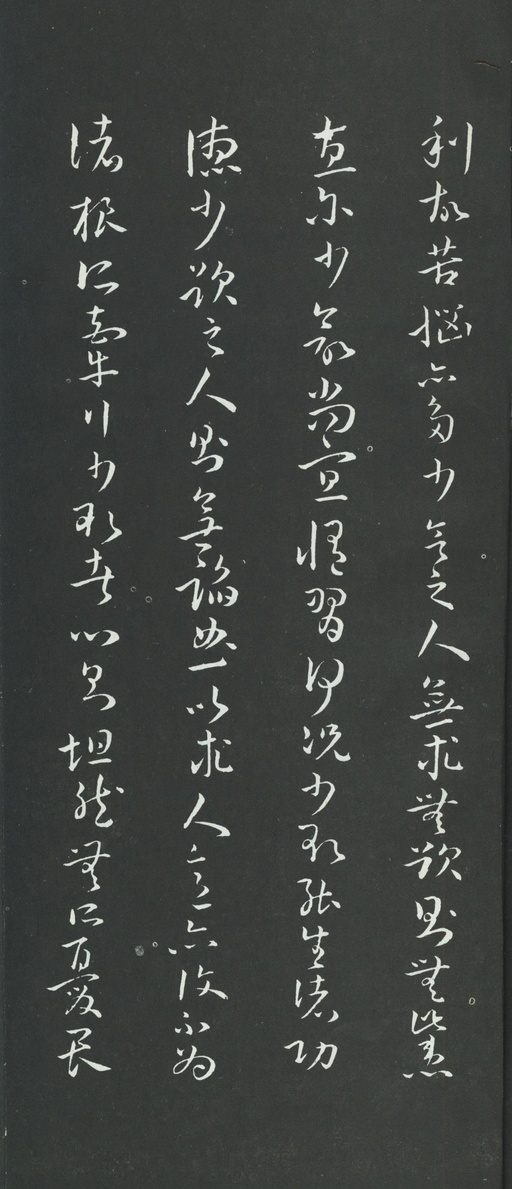 利故苦惱亦多少欲之人無求無欲則無此患
直尔少欲尚宜脩習何況少欲能生諸功
德少欲之人則無諂曲以求人意亦復不為
諸根所牽行少欲者心則坦然無所憂畏